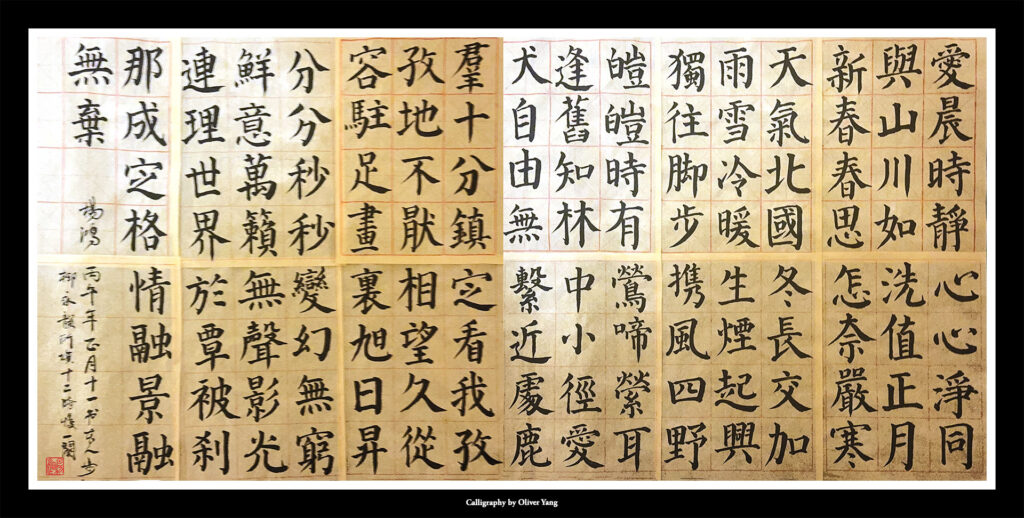 愛晨時靜心心淨同
與山川如洗值正月
新春春思怎奈嚴寒
天氣北國冬長交加
雨雪冷暖生煙起興
獨往脚步携風四野
皚皚時有鶯啼縈耳
逢舊知林中小徑愛
犬自由無繫近處鹿
羣十分鎮㝎看我孜
孜地不厭相望久從
容駐足畫裏旭日昇
分分秒秒變幻無窮
鮮意萬籟無聲影光
連理世界於覃被刹
那成㝎格情融景融
無棄
楊鴻
丙午年正月十一书友人
柳永韻所填十二時慢一闋
Calligraphy by Oliver Yang